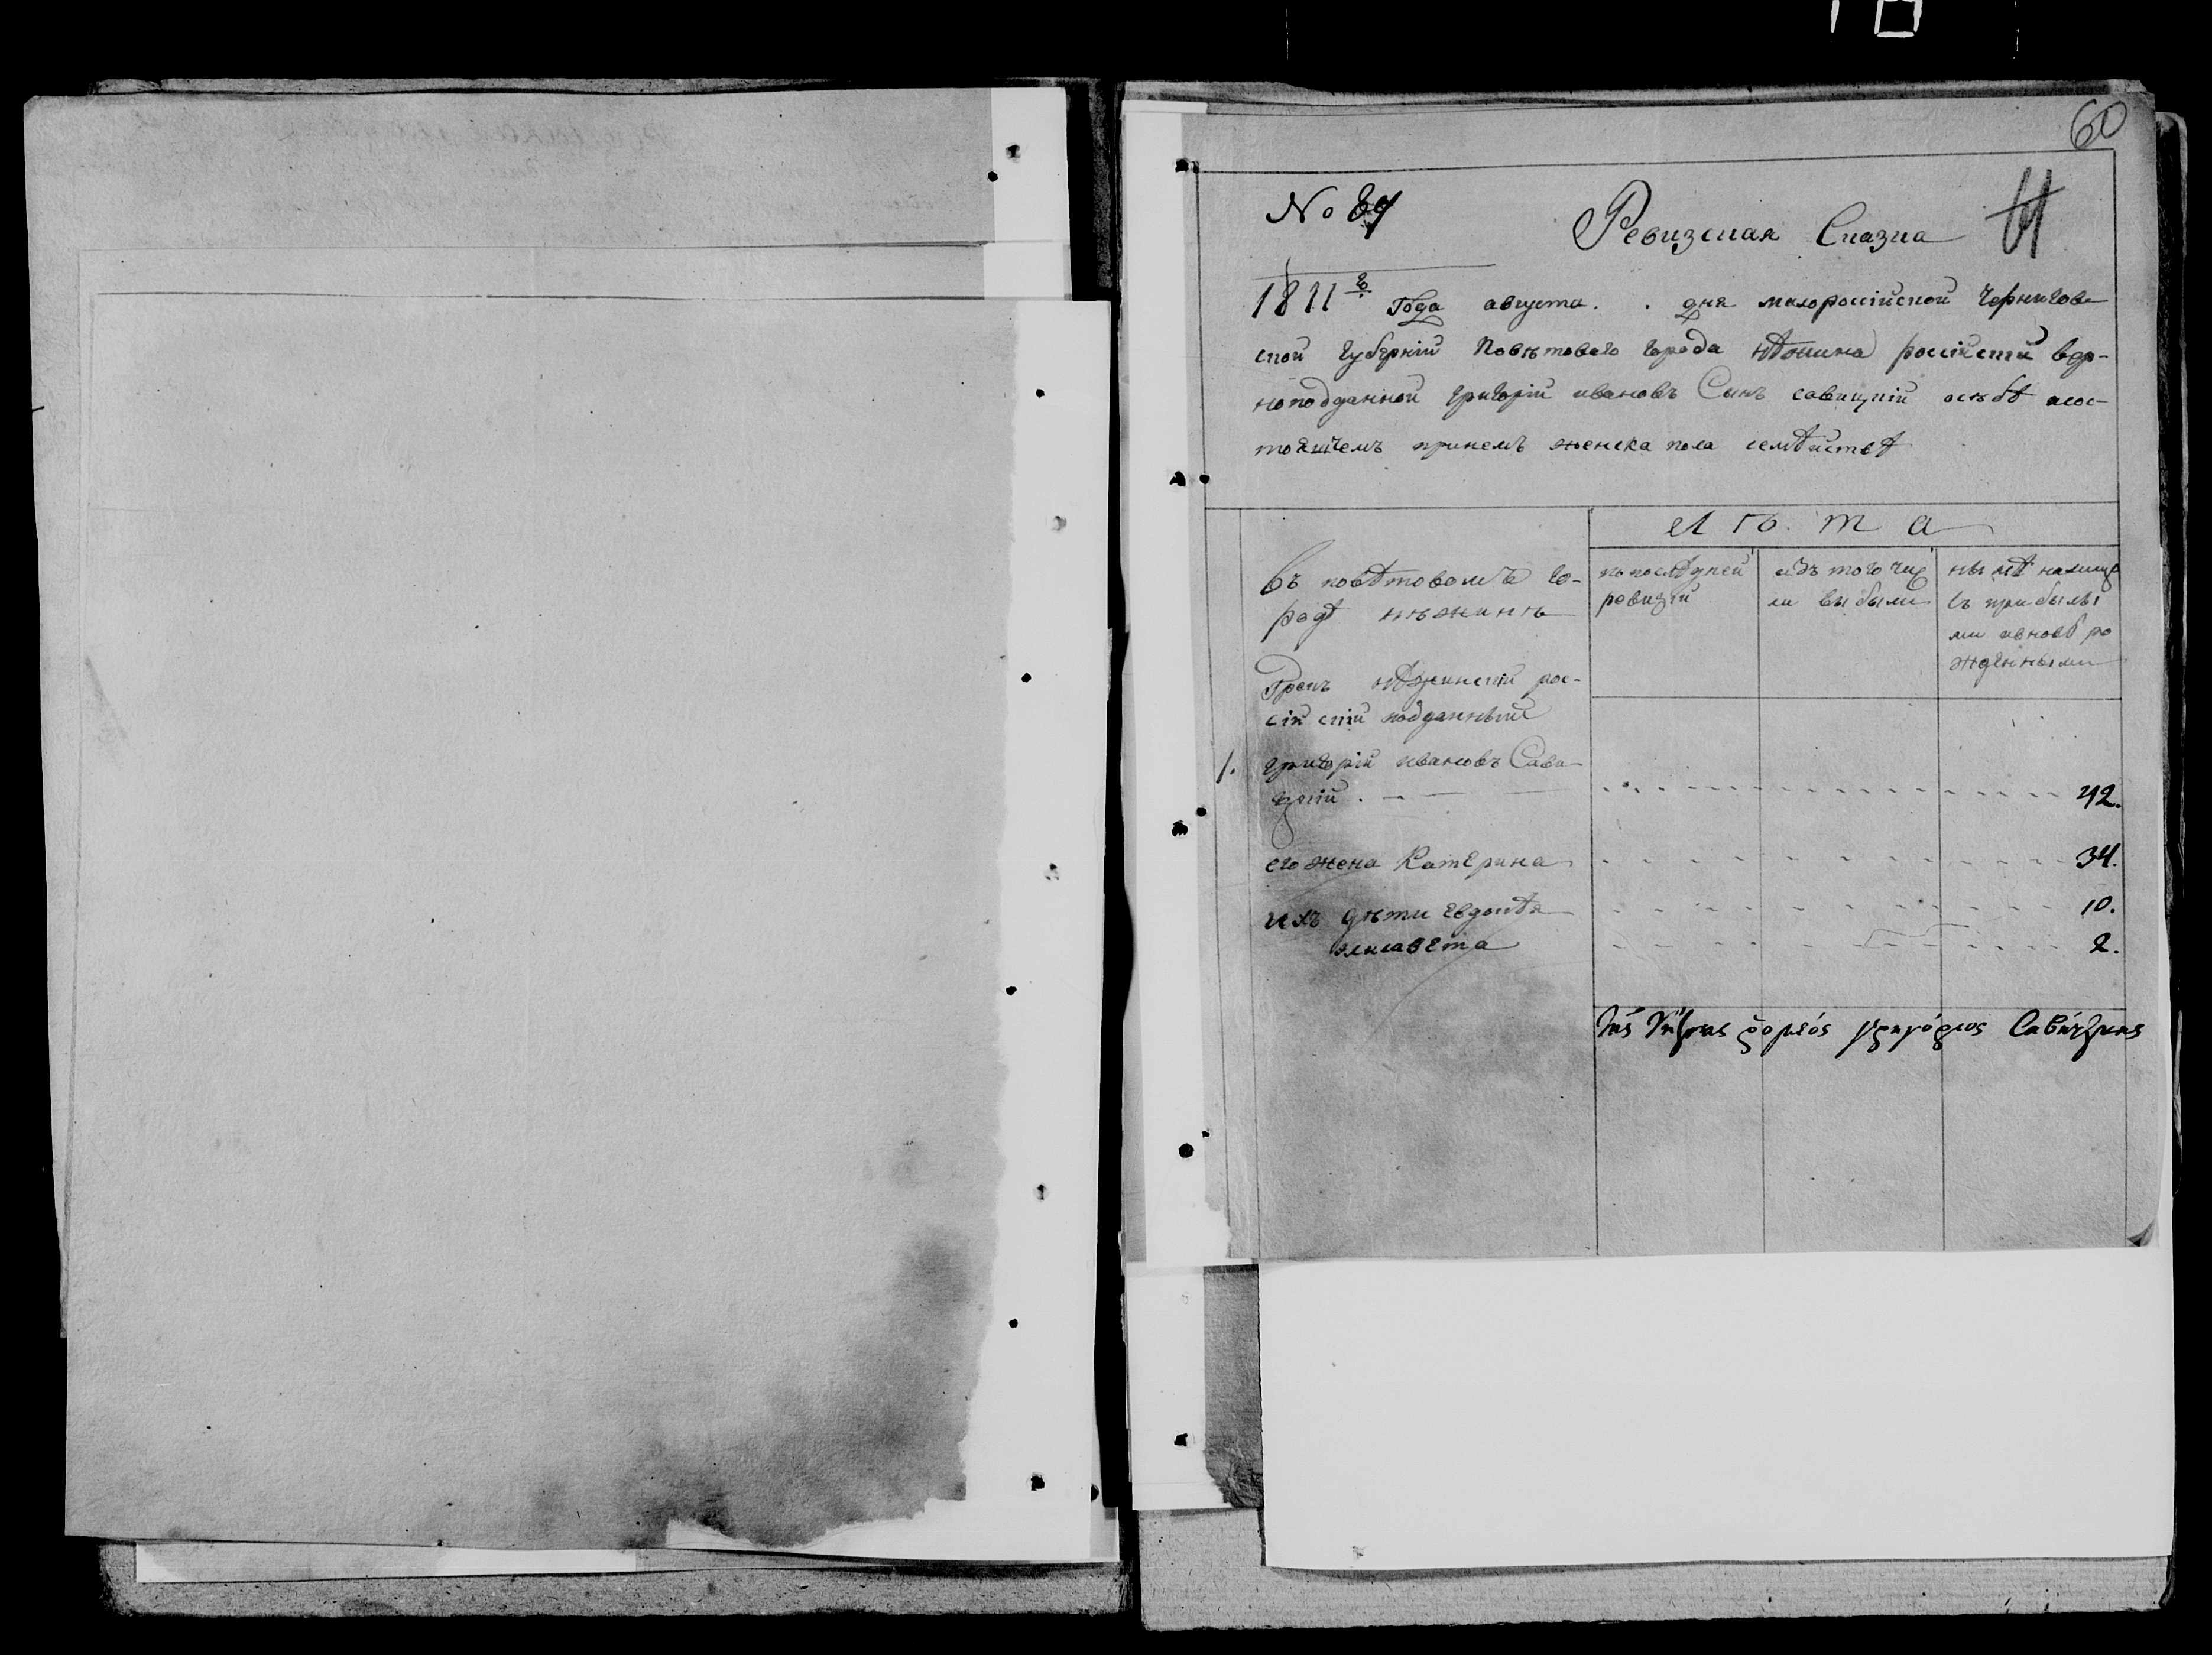 60
№ 87
Ревизская Сказка
1811го Года августа . . дня малороссийской Чернигов-
ской губерніи Повѣтового города нѣжина россійскій вер-
ноподданной григорій ивановъ Сынъ савицкій осебѣ исос-
тоящемъ принемъ женска пола семѣйствѣ
Лѣта
Въ повѣтовомъ го-
родѣ нѣжинѣ
попослѣдней
ревизіи
изъ того чис
ла выбыли
нынѣ налицо
съ прибылы
ми ивновь ро
жденными
Грекъ нѣжинскій рос-
сійскій подданный
1. григорій ивановъ Сави-
цкій . 42.
его жена Катерина 34.
ихъ дѣти Евдокѣя 10.
элисавета 2.
γρηγόριος Σαβίτζκης